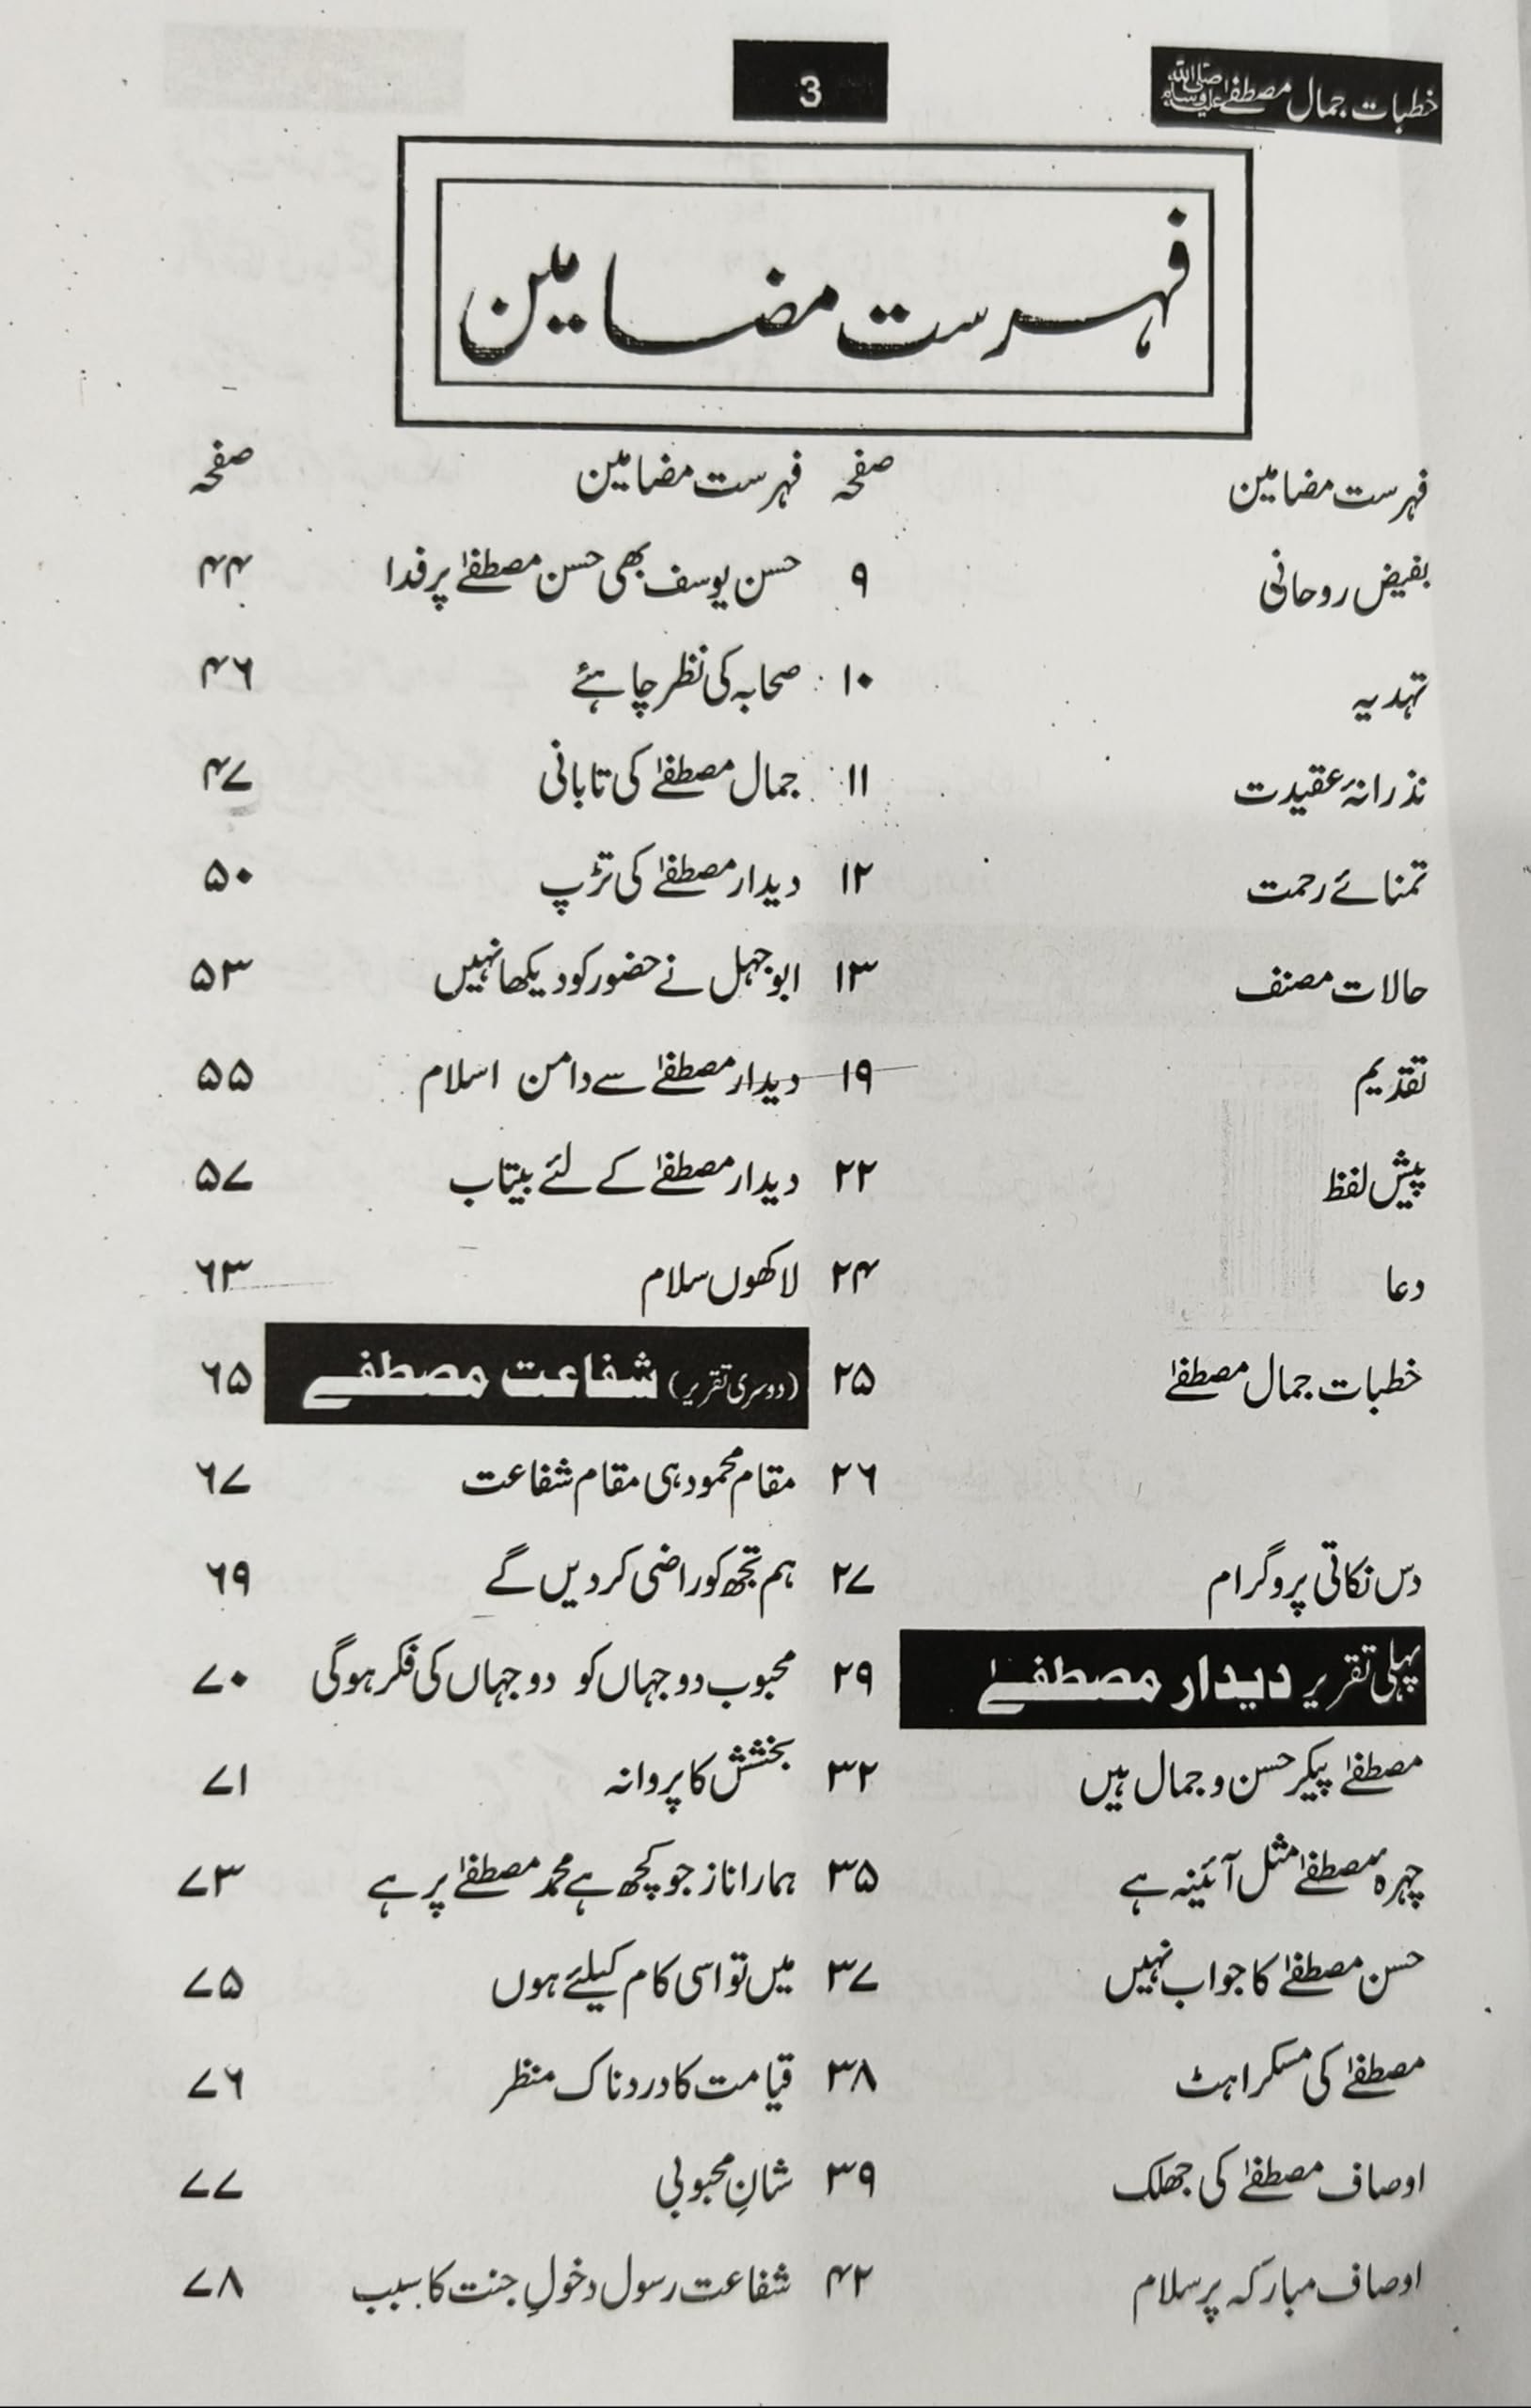 خطبات جمال مصطفےٰ ﷺ
3
فہرست مضامین
فہرست مضامین صفحہ
بفیض روحانی ۹
تہدیہ ۱۰
نذرانۂ عقیدت ۱۱
تمنائے رحمت ۱۲
حالات مصنف ۱۳
تقدیم ۱۹
پیش لفظ ۲۲
دعا ۲۴
خطبات جمال مصطفےٰ ۲۵
۲۶
دس نکاتی پروگرام ۲۷
پہلی تقریر دیدار مصطفےٰ ۲۹
مصطفےٰ پیکر حسن و جمال ہیں ۳۲
چہرہ مصطفےٰ مثل آئینہ ہے ۳۵
حسن مصطفےٰ کا جواب نہیں ۳۷
مصطفےٰ کی مسکراہٹ ۳۸
اوصاف مصطفےٰ کی جھلک ۳۹
اوصاف مبارکہ پر سلام ۴۲
فہرست مضامین صفحہ
حسن یوسف بھی حسن مصطفےٰ پر فدا ۴۴
صحابہ کی نظر چاہئے ۴۶
جمال مصطفےٰ کی تابانی ۴۷
دیدار مصطفےٰ کی تڑپ ۵۰
ابو جہل نے حضور کو دیکھا نہیں ۵۳
دیدار مصطفےٰ سے دامن اسلام ۵۵
دیدار مصطفےٰ کے لئے بیتاب ۵۷
لاکھوں سلام ۶۳
(دوسری تقریر) شفاعت مصطفے ۶۵
مقام محمود ہی مقام شفاعت ۶۷
ہم تجھ کو راضی کر دیں گے ۶۹
محبوب دو جہاں کو دو جہاں کی فکر ہوگی ۷۰
بخشش کا پروانہ ۷۱
ہمارا ناز جو کچھ ہے محمد مصطفےٰ پر ہے ۷۳
میں تو اسی کام کیلئے ہوں ۷۵
قیامت کا دردناک منظر ۷۶
شانِ محبوبی ۷۷
شفاعت رسول دخولِ جنت کا سبب ۷۸